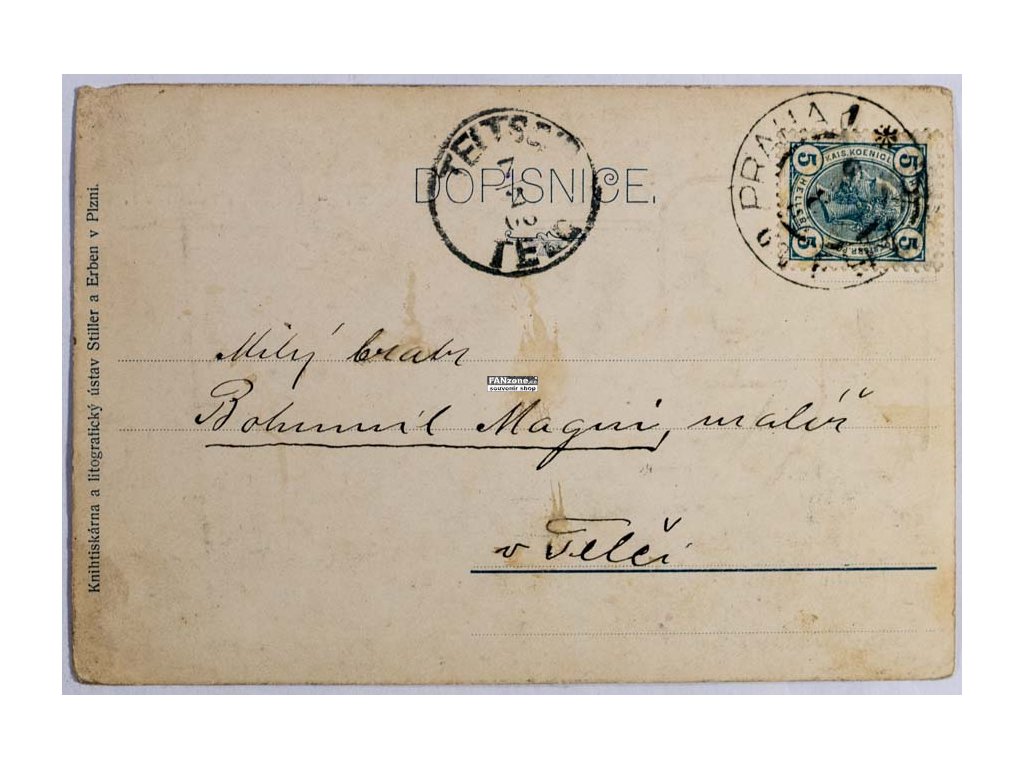 DOPISNICE.
TELČ
PRAHA 1
KAIS. KOENIGL
5 5
5 5
Milý bratr
FANzone.cz
souvenir shop
Bohumil Magni, malíř
v Telči
Knihtiskárna a litografický ústav Stiller a Erben v Plzni.